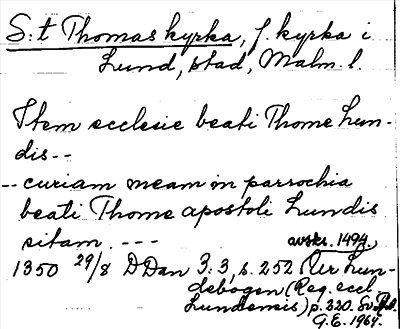 S:t Thomas kyrka, f. kyrka i
Lund, stad, Malm. l.
Item ecclesie beati Thome Lun-
dis--
-- curiam meam in parrochia
beati Thome apostoli Lundis
sitam. ---
avskr. 1494,
1350 29/8 DDan 3:3, s. 252 (Ur Lun-
debogen (Reg. eccl.
Lundensis) p. 320. Sv. Rd.
G.E. 1964.